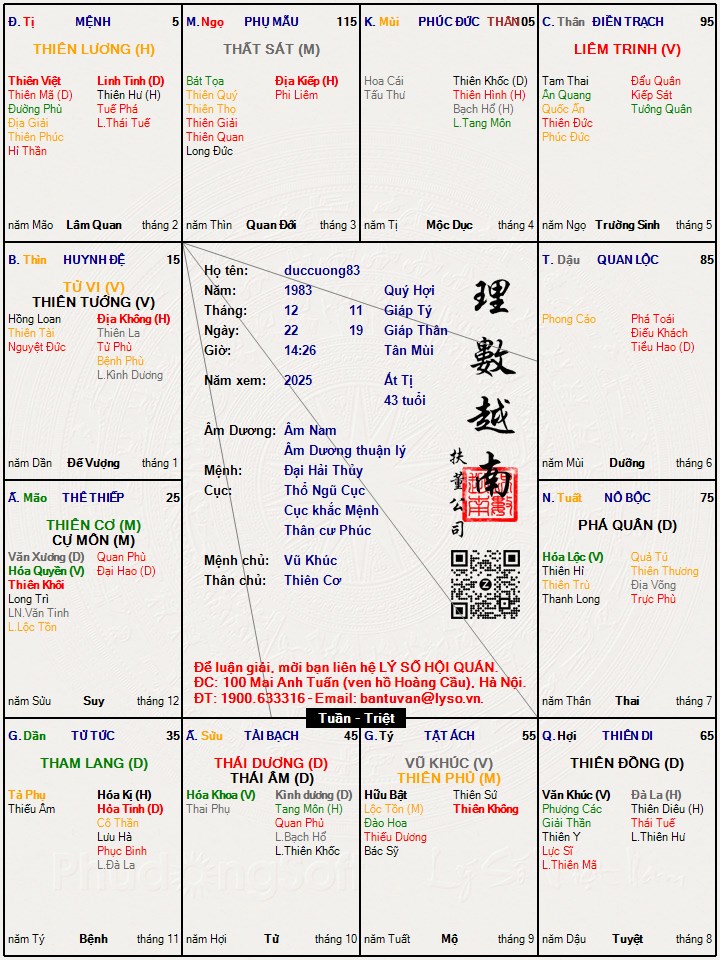 Đ. Tị MỆNH 5
THIÊN LƯƠNG (H)
Thiên Việt Linh Tinh (D)
Thiên Mã (D) Thiên Hư (H)
Đường Phù Tuế Phá
Địa Giải L.Thái Tuế
Thiên Phúc
Hỉ Thần
năm Mão Lâm Quan tháng 2
M. Ngọ PHỤ MẪU 115
THẤT SÁT (M)
Bát Tọa Địa Kiếp (H)
Thiên Quý Phi Liêm
Thiên Thọ
Thiên Giải
Thiên Quan
Long Đức
năm Thìn Quan Đới tháng 3
K. Mùi PHÚC ĐỨC THÂN 105
Hoa Cái Thiên Khốc (D)
Tấu Thư Thiên Hình (H)
Bạch Hổ (H)
L.Tang Môn
năm Tị Mộc Dục tháng 4
C. Thân ĐIỀN TRẠCH 95
LIÊM TRINH (V)
Tam Thai Đẩu Quân
Ân Quang Kiếp Sát
Quốc Ấn Tướng Quân
Thiên Đức
Phúc Đức
năm Ngọ Trường Sinh tháng 5
B. Thìn HUYNH ĐỆ 15
TỬ VI (V)
THIÊN TƯỚNG (V)
Hồng Loan Địa Không (H)
Thiên Tài Thiên La
Nguyệt Đức Tử Phù
Bệnh Phù
L.Kình Dương
năm Dần Đế Vượng tháng 1
Họ tên: duccuong83
Năm: 1983 Quý Hợi
Tháng: 12 11 Giáp Tý
Ngày: 22 19 Giáp Thân
Giờ: 14:26 Tân Mùi
Năm xem: 2025 Ất Tị
43 tuổi
Âm Dương: Âm Nam
Âm Dương thuận lý
Mệnh: Đại Hải Thủy
Cục: Thổ Ngũ Cục
Cục khắc Mệnh
Thân cư Phúc
Mệnh chủ: Vũ Khúc
Thân chủ: Thiên Cơ
理數越南
扶董公司
Z
Để luận giải, mời bạn liên hệ LÝ SỐ HỘI QUÁN.
ĐC: 100 Mai Anh Tuấn (ven hồ Hoàng Cầu), Hà Nội.
ĐT: 1900.633316 - Email: bantuvan@lyso.vn.
T. Dậu QUAN LỘC 85
Phong Cáo Phá Toái
Điếu Khách
Tiểu Hao (D)
năm Mùi Dưỡng tháng 6
Ấ. Mão THÊ THIẾP 25
THIÊN CƠ (M)
CỰ MÔN (M)
Văn Xương (D) Quan Phù
Hóa Quyền (V) Đại Hao (D)
Thiên Khôi
Long Trì
LN.Văn Tinh
L.Lộc Tồn
năm Sửu Suy tháng 12
N. Tuất NÔ BỘC 75
PHÁ QUÂN (D)
Hóa Lộc (V) Quả Tú
Thiên Hỉ Thiên Thương
Thiên Trù Địa Võng
Thanh Long Trực Phù
năm Thân Thai tháng 7
Tuần - Triệt
G. Dần TỬ TỨC 35
THAM LANG (D)
Tả Phụ Hóa Kị (H)
Thiếu Âm Hỏa Tinh (D)
Cô Thần
Lưu Hà
Phục Binh
L.Đà La
năm Tý Bệnh tháng 11
Ấ. Sửu TÀI BẠCH 45
THÁI DƯƠNG (D)
THÁI ÂM (D)
Hóa Khoa (V) Kình dương (D)
Thai Phụ Tang Môn (H)
Quan Phủ
L.Bạch Hổ
L.Thiên Khốc
năm Hợi Tử tháng 10
G. Tý TẬT ÁCH 55
VŨ KHÚC (V)
THIÊN PHỦ (M)
Hữu Bật Thiên Sứ
Lộc Tồn (M) Thiên Không
Đào Hoa
Thiếu Dương
Bác Sỹ
năm Tuất Mộ tháng 9
Q. Hợi THIÊN DI 65
THIÊN ĐỒNG (D)
Văn Khúc (V) Đà La (H)
Phượng Các Thiên Diêu (H)
Giải Thần Thái Tuế
Thiên Y L.Thiên Hư
Lực Sĩ
L.Thiên Mã
năm Dậu Tuyệt tháng 8